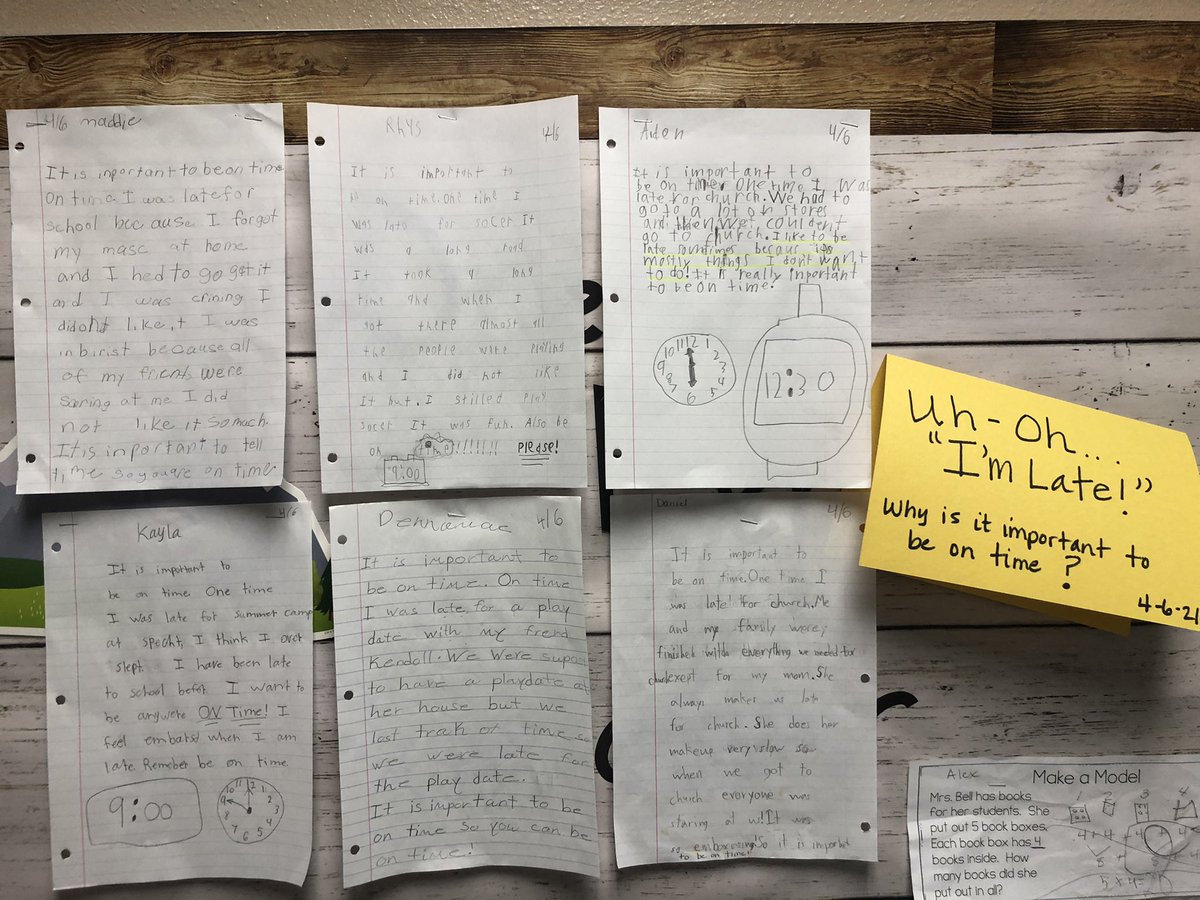 4/6 maddie
It is inportant to be on time
On time I was late for
school because I forgot
my masc at home
and I hed to go get it
and I was crining I
didoht like it I was
inbirist because all
of my frients were
Saring at me I did
not like it So mach.
It is inportant to tell
time so you are on time
Rhys
4/6
It is important to
on time. One time I
was late for socer It
was a long road
It took a long
time and when I
got there almost all
the people were playing
and I did not like
It but. I stilled play
socer It was fun. Also be
on time!!!!!!! PLease!
9:00
Aiden
4/6
It is important to
be on time. One time I was
late for church. We had to
go to a lot on stores
and then we couldent
go to church. I like to be
late somtimes becaus its
mostly things I dont want
to do! It is really important
to be on time.
11 12 1
10 2
9 3
8 4
7 5
6
12:30
Uh-Oh...
"I'm Late!"
Why is it important to
be on time?
4-6-21
Kayla
4/6
It is important to
be on time. One time
I was late for summer camp
at specht, I think I over
slept. I have been late
to school befor I want to
be anywere ON Time! I
feel embarsd when I am
late. Remeber be on time.
9:00
4/6
It is important to
be on time. On time
I was late for a play
date with my frend
Kendall. We were supos
to have a playdate at
her house but we
lost trak of time so
we were late for
the play date.
It is important to be
on time so you can be
on time!
Daniel
4/6
It is important to
be on time. One time I
was late for church. Me
and my family were
finished with everything we needed for
church exept for my mom. She
always makes us late
for church. She does her
makeup very slow so
when we got to
church everyone was
staring at us! It was
so embarrasing So it is important
to be on time!
Alex
Make a Model
Mrs. Bell has books
for her students. She
put out 5 book boxes.
Each book box has 4
books inside. How
many books did she
put out in all?
1 2 3 4